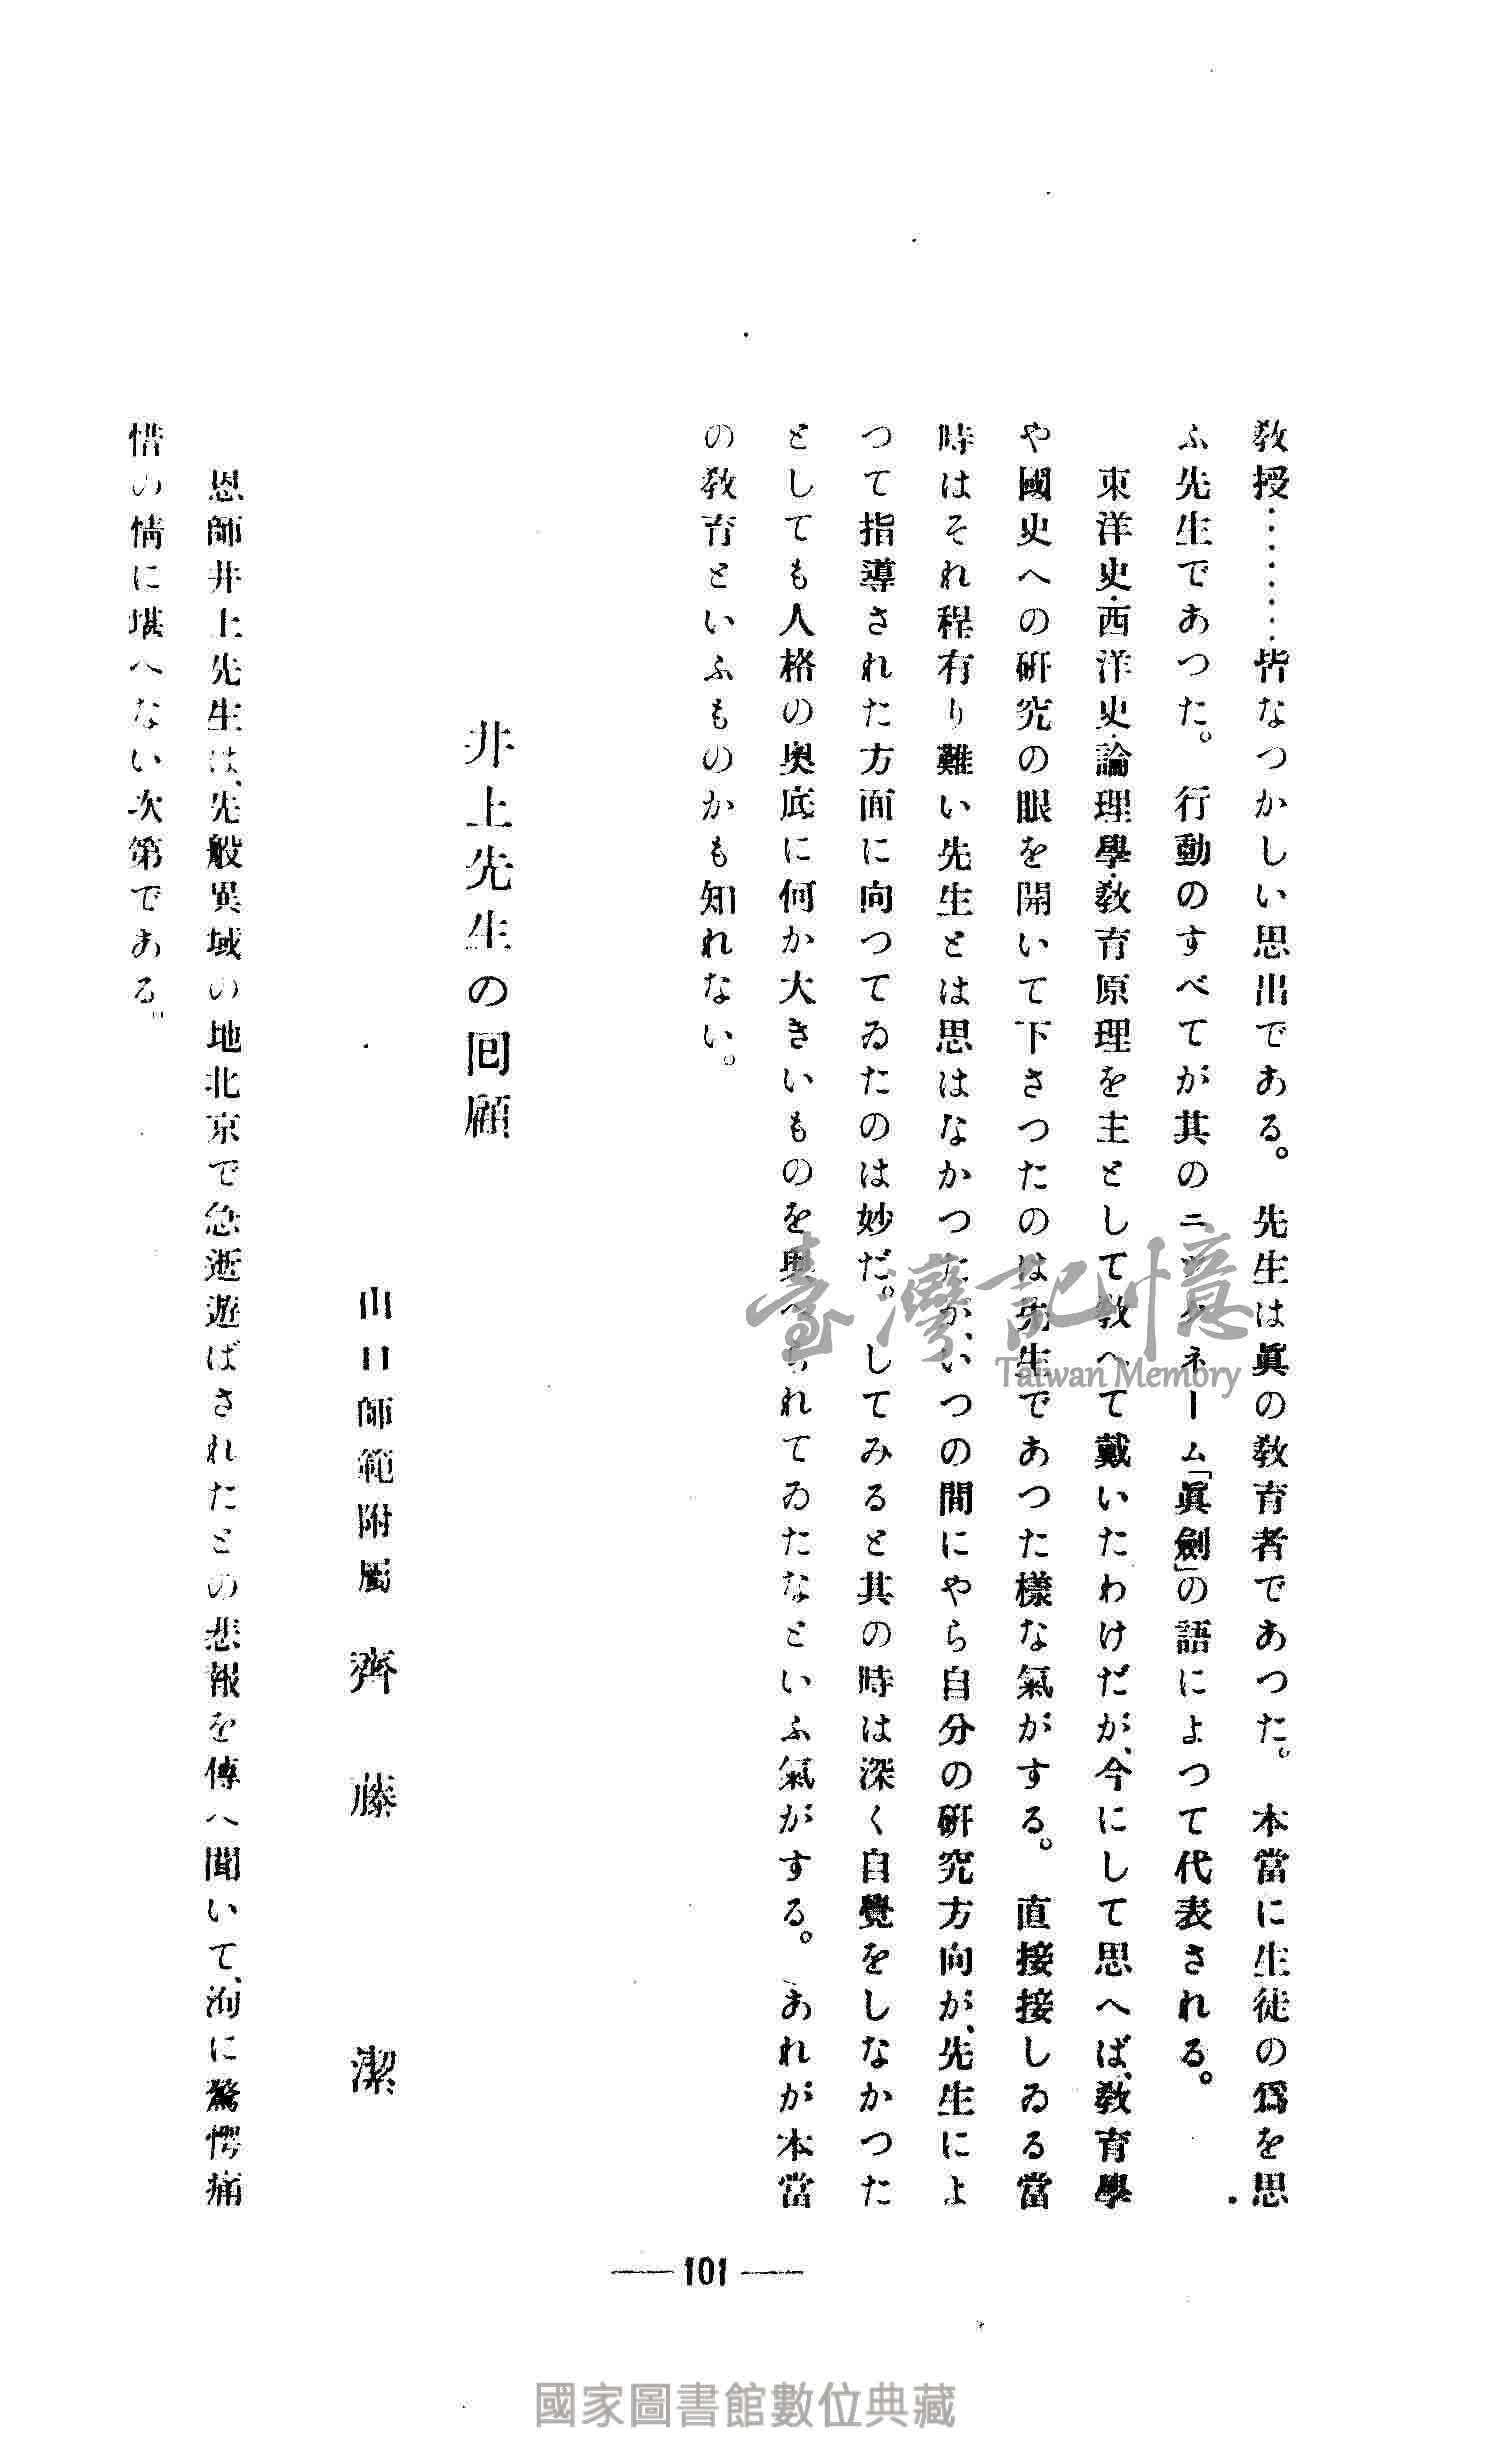 教授‥‥‥皆なつかしい思出である。先生は眞の教育者であつた。本當に生徒の爲を思
ふ先生であつた。行動のすべてが其のニックネーム「眞劍」の語によつて代表される。
東洋史・西洋史・論理學・教育原理を主として教へて戴いたわけだが、今にして思へば、教育學
や國史への研究の眼を開いて下さつたのは先生であつた樣な氣がする。直接接しゐる當
時はそれ程有り難い先生とは思はなかつたが、いつの間にやら自分の研究方向が、先生によ
つて指導された方面に向つてゐたのは妙だ。してみると其の時は深く自覺をしなかつた
としても人格の奥底に何か大きいものを與へられてゐたなといふ氣がする。あれが本當
の教育といふものかも知れない。
井上先生の囘顧
山口師範附屬 齊藤潔
恩師井上先生は、先般異域の地北京で急逝遊ばされたとの悲報を傳へ聞いて、洵に驚愕痛
惜の情に堪へない次第である。
— 101 —
臺灣記憶
Taiwan Memory
國家圖書館數位典藏